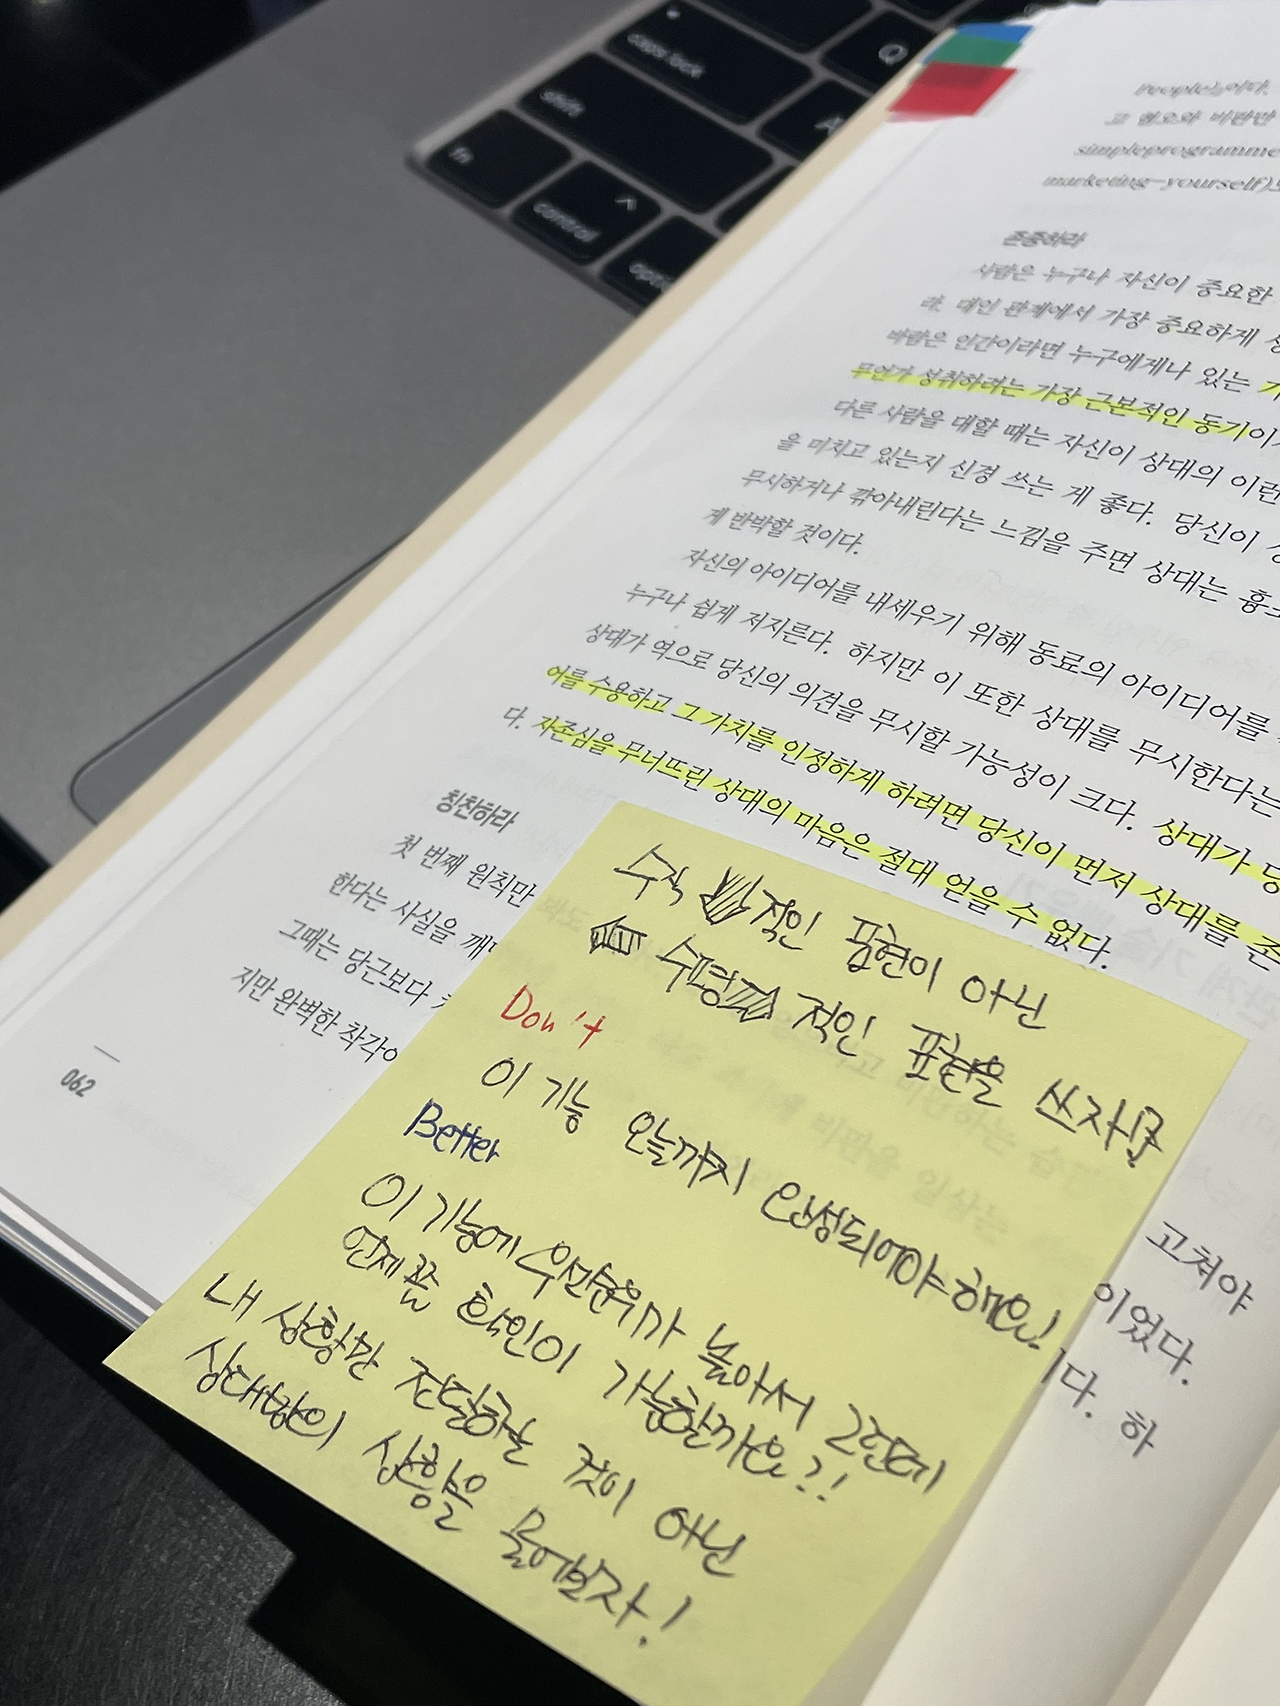 caps lock
Q
shift
A
fn
control
People』이다.
고 혐오와 비판만
simpleprogramme
marketing-yourself)
존중하라
사람은 누구나 자신이 중요한
라. 대인 관계에서 가장 중요하게
바람은 인간이라면 누구에게나 있는
무언가 성취하려는 가장 근본적인 동기이
다른 사람을 대할 때는 자신이 상대의 이런
을 미치고 있는지 신경 쓰는 게 좋다. 당신이
무시하거나 깎아내린다는 느낌을 주면 상대는
게 반박할 것이다.
자신의 아이디어를 내세우기 위해 동료의 아이디어를
누구나 쉽게 저지른다. 하지만 이 또한 상대를 무시한다는
상대가 역으로 당신의 의견을 무시할 가능성이 크다. 상대가 당
어를 수용하고 그 가치를 인정하게 하려면 당신이 먼저 상대를 존
다. 자존심을 무너뜨린 상대의 마음은 절대 얻을 수 없다.
칭찬하라
첫 번째 원칙만
한다는 사실을 깨
그때는 당근보다
지만 완벽한 착각이
062
수직 적인 표현이 아닌
수평 적인 표현을 쓰자!
Don't
이 기능 오늘까지 완성되어야 해요!
Better
이 기능에 우선순위가 높아서 그런데
언제쯤 확인이 가능할까요??!
내 상황만 전달하는 것이 아닌
상대방의 상황을 물어보자!
고쳐야
이었다.
다. 하